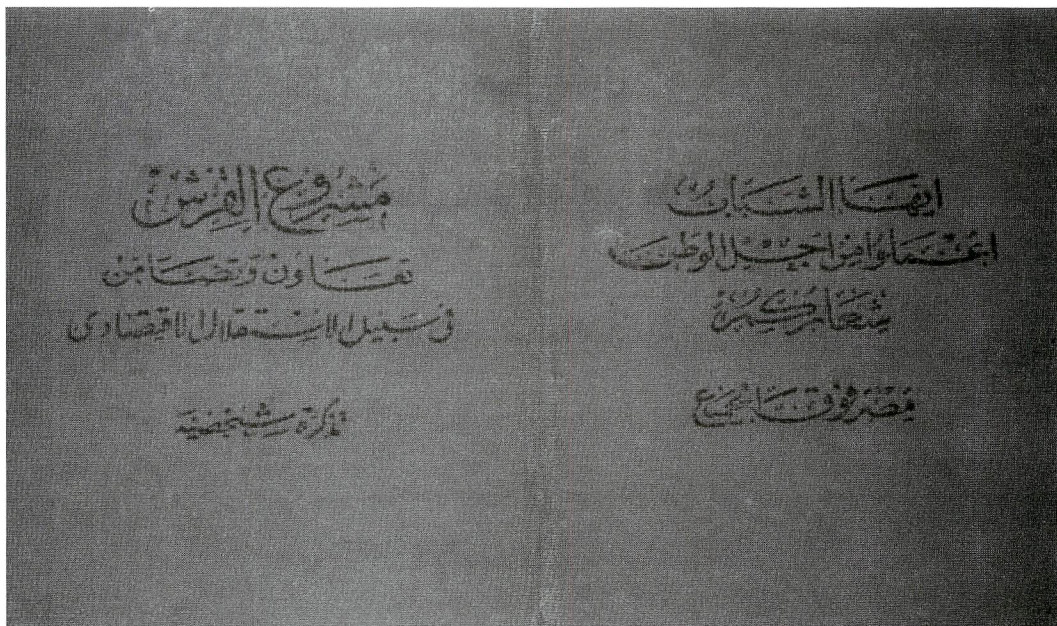 ايها الشباب
اعملوا من اجل الوطن
شعاركم
مصر فوق الجميع
مشروع القرش
تعاون وتضامن
فى سبيل الاستقلال الاقتصادى
تذكرة شخصية